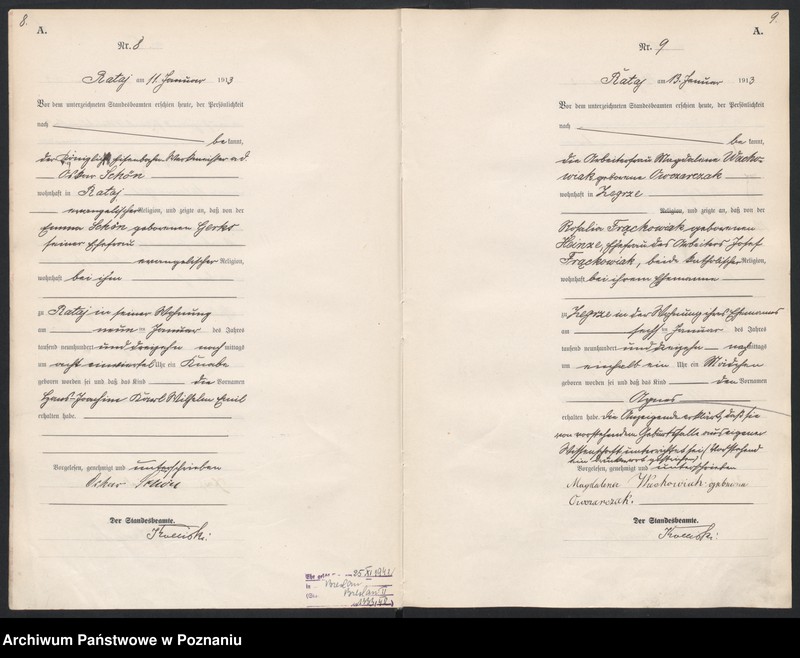 8.
A.
Nr. 8
Rataj am 11. Januar 1913
Vor dem unterzeichneten Standesbeamten erschien heute, der Persönlichkeit
nach
bekannt,
der Königliche Eisenbahn Werkmeister a. d.
Oskar Schön
wohnhaft in Rataj
evangelischer Religion, und zeigte an, daß von der
Emma Schön geborenen
seiner Ehefrau
evangelischer Religion,
wohnhaft bei ihm
zu Rataj in seiner Wohnung
am neun ten Januar des Jahres
tausend neunhundert und dreizehn nachmittags
um acht einviertel Uhr ein Knabe
geboren worden sei und daß das Kind die Vornamen
Hans-Joachim Karl Wilhelm Emil
erhalten habe.
Vorgelesen, genehmigt und unterschrieben
Oskar Schön
Der Standesbeamte.
25 XI 1942
in Breslau
Breslau II
1433/42
9.
A.
Nr. 9
Rataj am 13. Januar 1913
Vor dem unterzeichneten Standesbeamten erschien heute, der Persönlichkeit
nach
bekannt,
die Arbeiterfrau Magdalena Wacho-
wiak geborene Owczarczak
wohnhaft in Zegrze
Religion, und zeigte an, daß von der
Rosalia Frąckowiak geborenen
Heinze, Ehefrau des Arbeiters Josef
Frąckowiak, beide katholischer Religion,
wohnhaft bei ihrem Ehemanne
zu Zegrze in der Wohnung ihres Ehemannes
am sechs ten Januar des Jahres
tausend neunhundert und dreizehn nachmittags
um einhalb ein Uhr ein Mädchen
geboren worden sei und daß das Kind den Vornamen
Agnes
erhalten habe. Die Anzeigende erklärt, daß sie
von vorstehendem Geburtsfalle aus eigener
Wissenschaft unterrichtet sei. Vorstehend
ein Druckwort gestrichen
Vorgelesen, genehmigt und unterschrieben
Magdalena Wachowiak geborene
Owczarczak.
Der Standesbeamte.
Archiwum Państwowe w Poznaniu